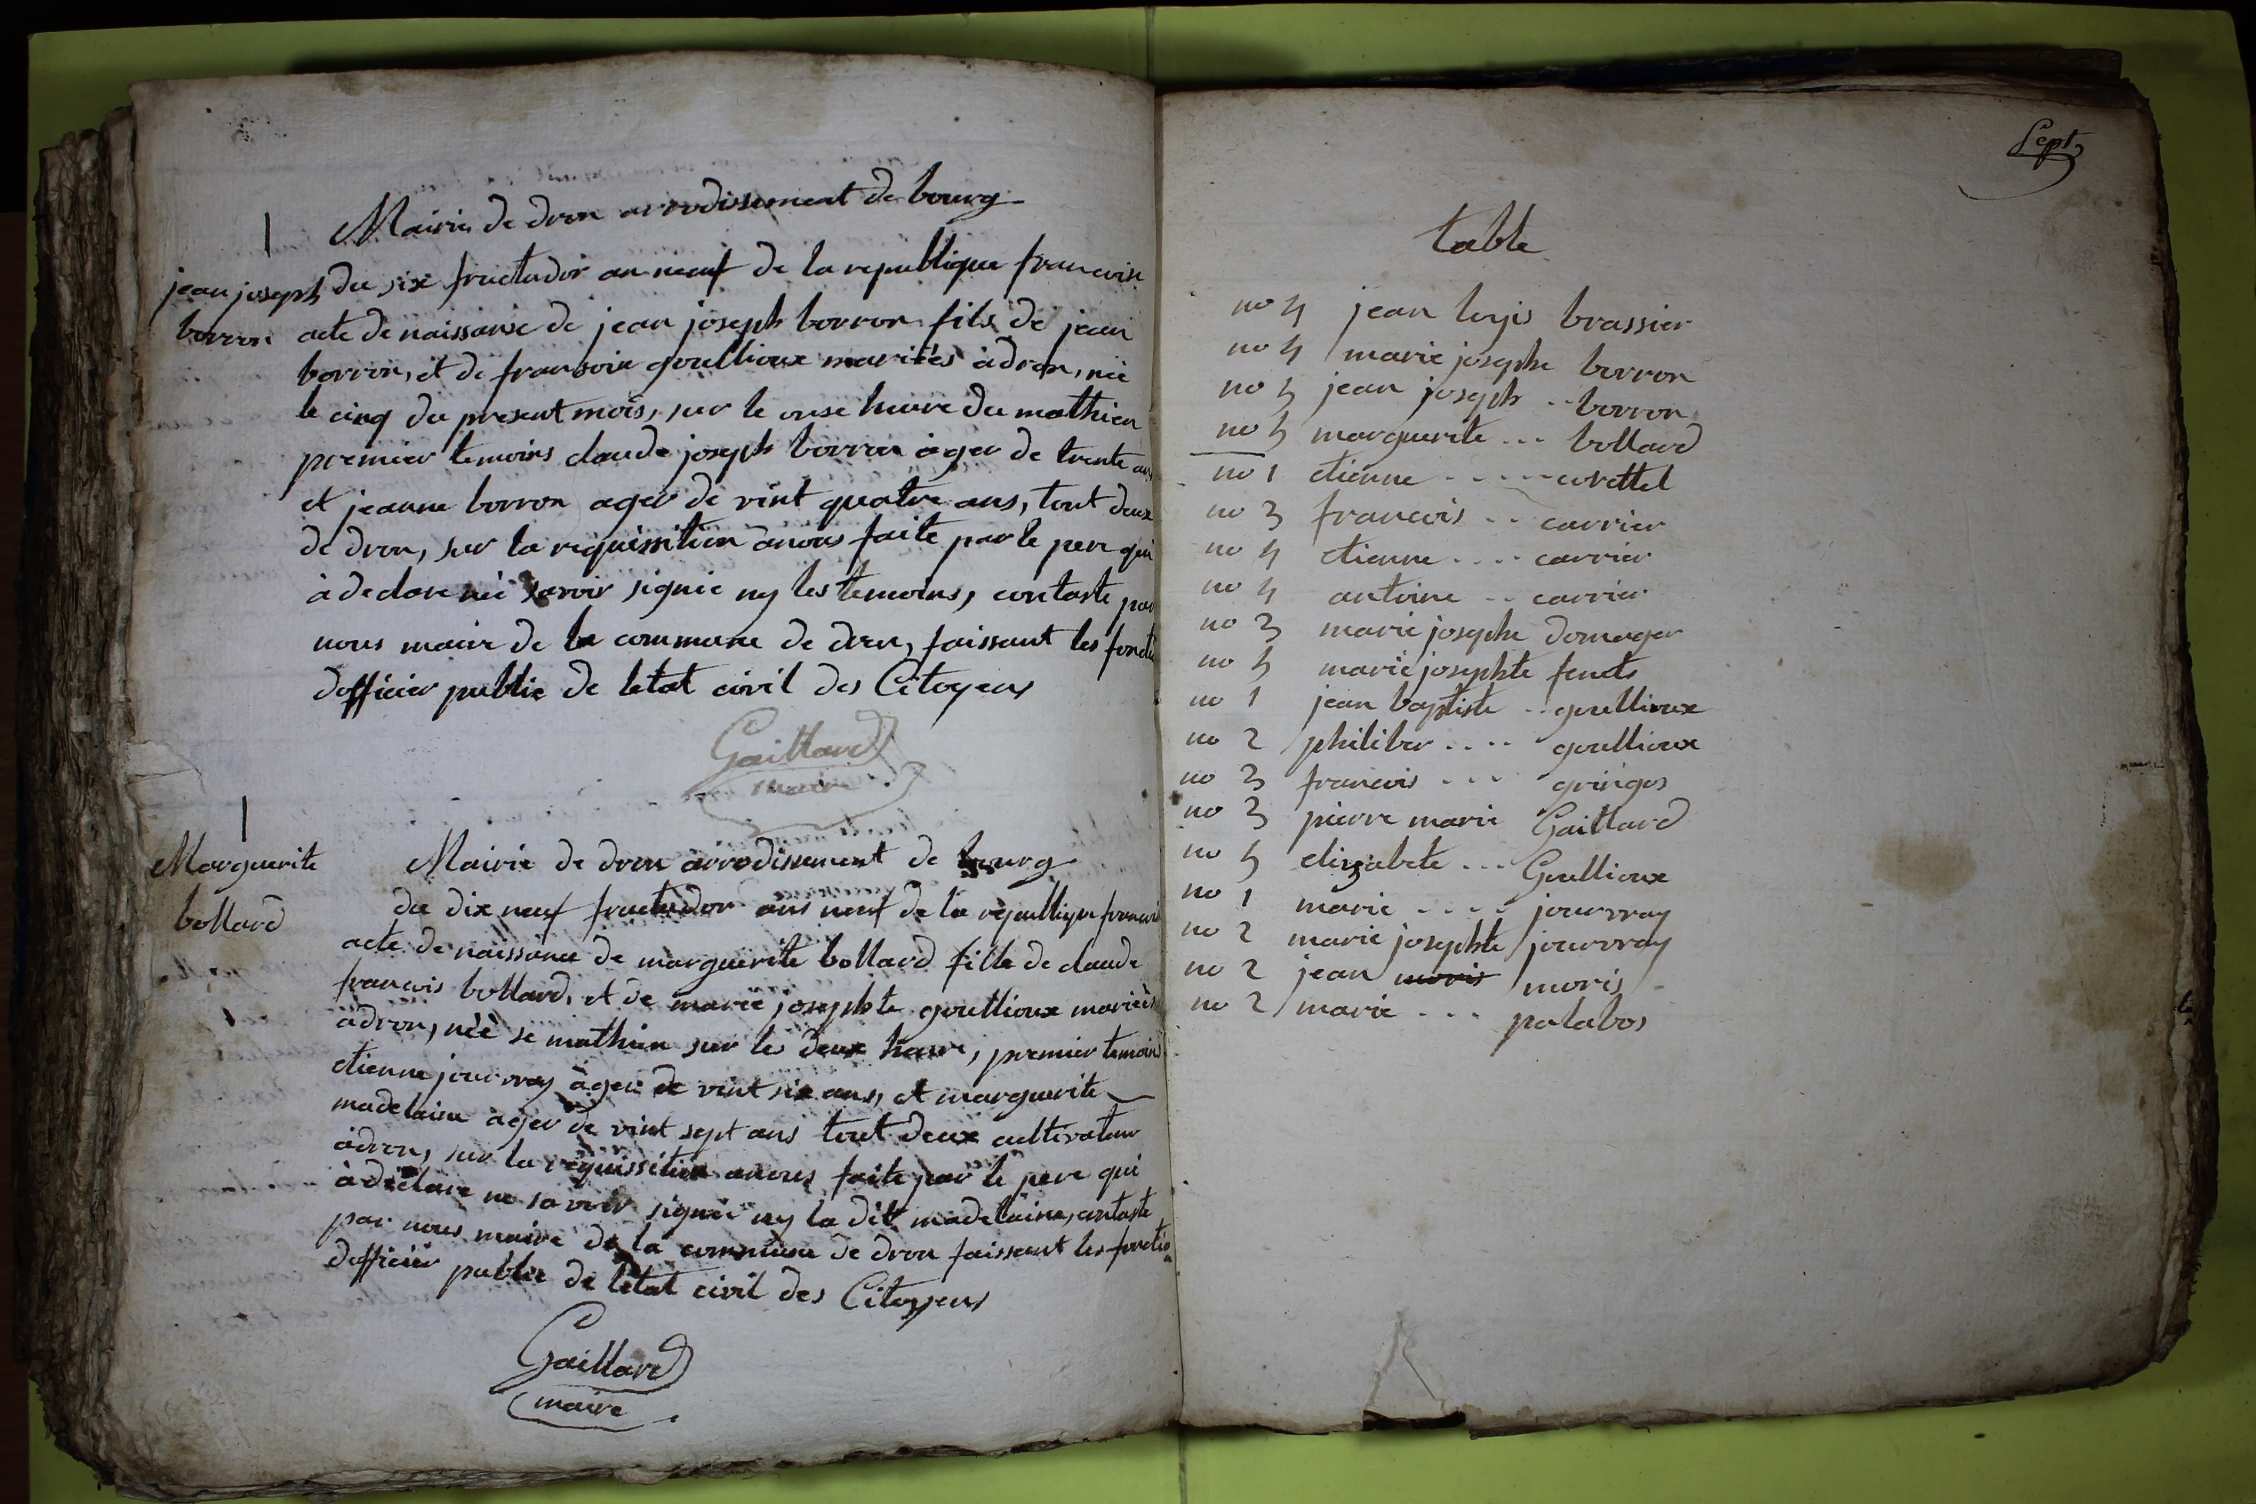 Mairie de dron arrodissement de bourg
jean joseph
borron
du six fructador an neuf de la republique francoise
acte de naissanse de jean joseph borron fils de jean
borron, et de fransoise goullioux mariés à dron, née
le cinq du present mois, sur le onse heure du mathien
premier temoins claude joseph borron àger de trente ans
et jeanne borron ager de vint quatre ans, tout deux
de dron, sur la requissition anous faite par le pere qui
à declare née savoir signée ny les temoins, contaste par
nous maire de la commune de dron, faissant les foncti
dofficier public de letat civil des Citoyens
Gaillard
maire
Marguerite
bollard
Mairie de dron arrodissement de bourg
du dix neuf fructador ans neuf de la republique francoise
acte de naissance de marguerite bollard fille de claude
francois bollard, et de marie josephte goullioux mariées
àdron, néé se mathien sur les deux heure, premier temoins
etienne jourvray àger de vint six ans, et marguerite
madelaine àger de vint sept ans tout deux cultivateur
àdron, sur la requissition anous faite par le pere qui
à declare ne savoir signée ny la dit madelaine, contaste
par nous maire de la commune de dron faissant les fonctio
dofficier public de letat civil des Citoyens
Gaillard
maire
Sept
table
no 4 jean louis brassier
no 4 marie josephe borron
no 5 jean joseph .. borron
no 5 marguerite ... bollard
no 1 etienne ..... corettel
no 3 francois .. carrier
no 4 etienne .... carrier
no 4 antoine .. carrier
no 3 marie josephe domager
no 5 marie josephte fends
no 1 jean baptiste .. goullioux
no 2 philiber .... goullioux
no 3 francois ... gringos
no 3 pierre marie Gaillard
no 5 elizabete ... Goullioux
no 1 marie .... jourvray
no 2 marie josephte jourvray
no 2 jean moris moris
no 2 marie ... palabos